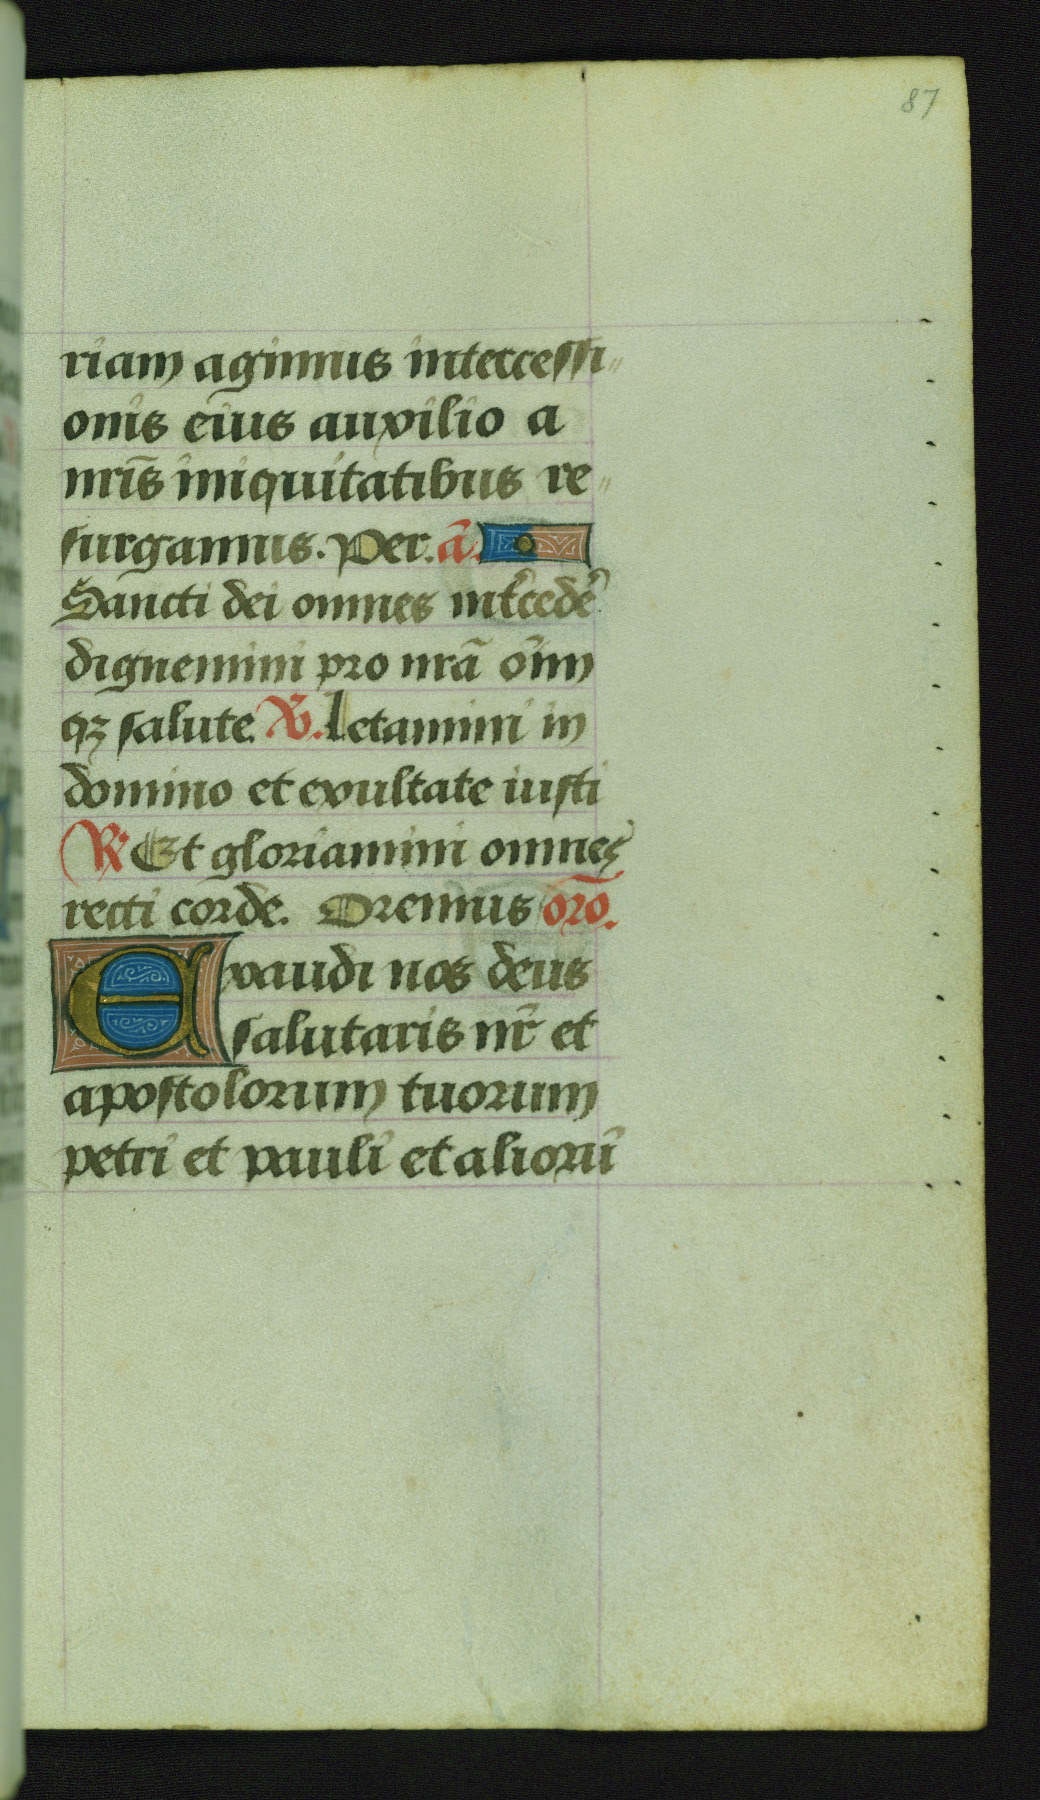 87
riam agimus intercessi
onis eius auxilio a
nr̄is iniquitatibus re
surgamus. Per. ā.
Sancti dei omnes int̉cedẻ
dignemini pro nrā oīm
qꝫ salute. V. Letamini in
domino et exultate iusti
R Et gloriamini omnes
recti corde. Oremus oro̅.
Exaudi nos deus
salutaris nr̄ et
apostolorum tuorum
petri et pauli et aliorū